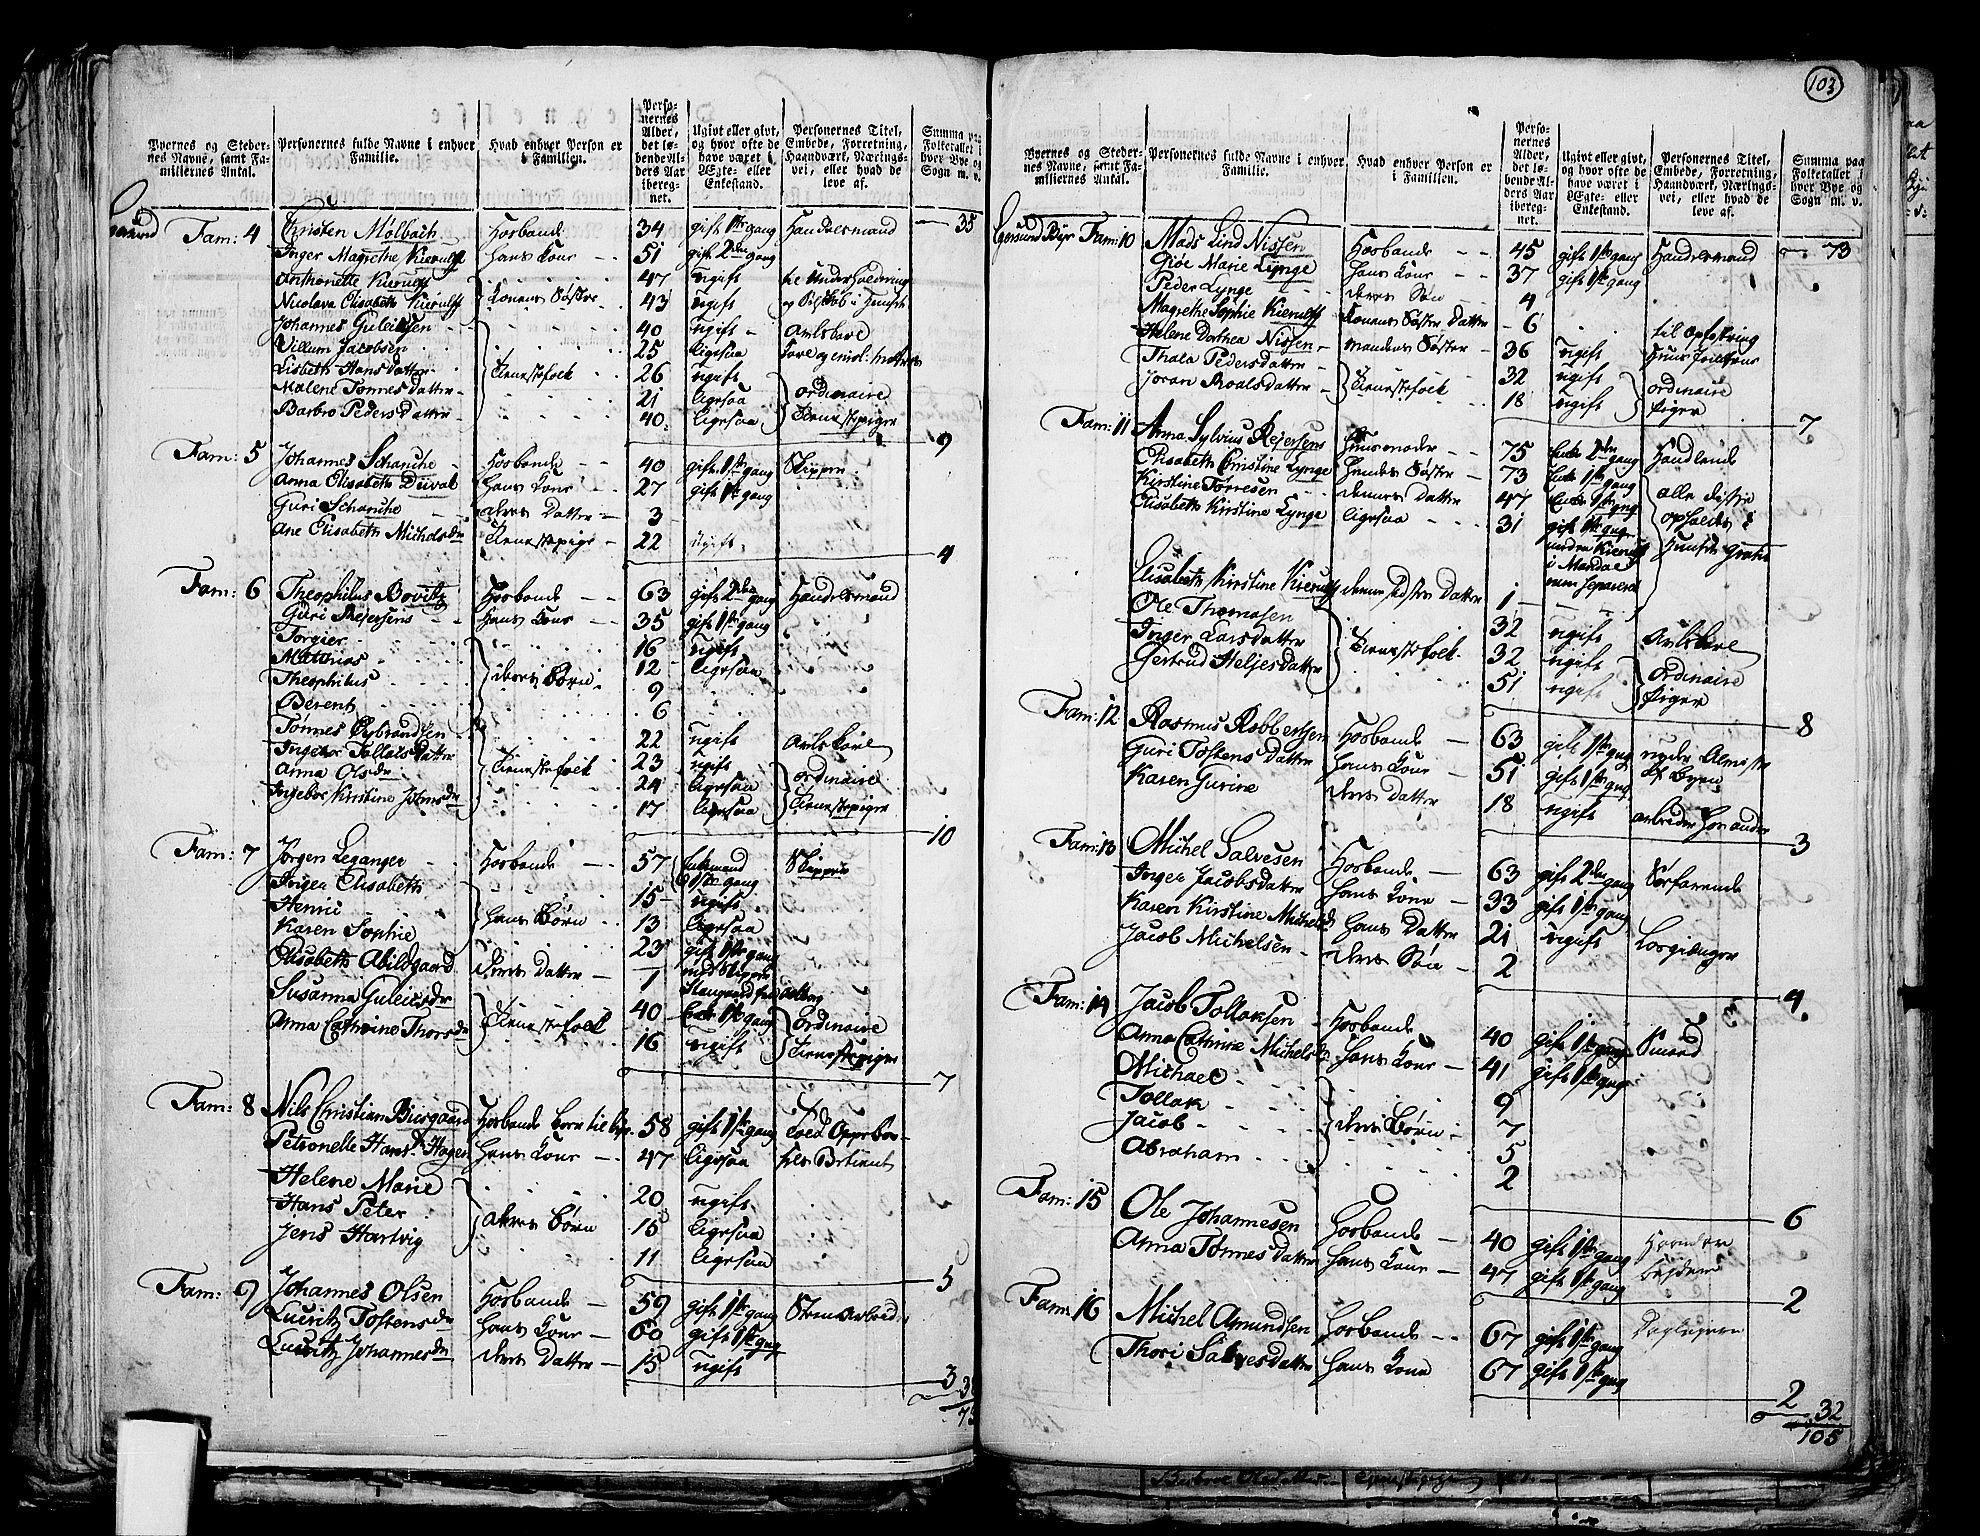 Byernes og Stedernes Navne, samt Familiernes Antal.
Personernes fulde Navne i enhver Familie.
Hvad enhver Person er i Familien.
Personernes Alder, det løbende Alders Aar iberegnet.
Ugivt eller givt, og hvor ofte de have været i Ægte- eller Enkestand.
Personernes Titel, Embede, Forretning, Haandværk, Næringsvei, eller hvad de leve af.
Summa paa Folketallet i hver Bye og Sogn m. v.
35
Fam: 4 Christen Mølbach Hosbonde 34 gift 1ste gang Handelsmand
Inger Magrethe Kierulff Hans Kone 51 gift 2den gang
Anthonette Kierulff 47 ugift
Nicolava Elisabeth Kierulff Konens Søstre 43 ugift
Johannes Guleiksen 40 ugift
Villum Jacobsen 25 ligesaa
Lisbeth Hansdatter Tienestefolk 26 ugift
Malene Tønnesdatter 21 ligesaa ordinaire
Barbro Pedersdatter 40 ligesaa Tienestepiger
9
Fam: 5 Johannes Schanche Hosbonde 40 gift 1ste gang Skipper
Anna Elisabeth Düval Hans Kone 27 gift 1ste gang
Guri Schanche deres Datter 3
Ane Elisabeth Michelsdr Tienestepige 22 Ugift
4
Fam: 6 Theophilus Bovitz Hosbonde 63 gift 2den gang Handelsmand
Guri Reiersens Hans Kone 35 gift 1ste gang
Torgier 16 ugift
Mathias 12 ligesaa
Theophilus deres Børn 9
Berent 6
Tønnes Øybrandsen 22 ugift
Ingebor Tollalsdatter 23 ugift
Anna Olsdr Tienestefolk 24 ligesaa ordinaire
Ingebor Kirstine Johnsdr 17 ligesaa Tienestepiger
10
Fam: 7 Jørgen Leganger Hosbonde 57 Enkemand 1ste gang Skipper
Inger Elisabeth 15 ugift
Henric Hans Børn 13 ligesaa
Karen Sophie 23 gift 1ste gang med Skipper
Elisabeth Abildgaard deres Datter 1
Susanna Guleiksdr 40 Enke 1ste gang ordinaire
Anna Cathrine Thorsdr Tienestefolk 16 ugift Tienestepiger
7
Fam: 8 Nils Christian Birgaard Hosbonde 58 gift 1ste gang
Petronelle Hansdr Hagen Hans Kone 47 ligesaa
Helene Marie 20 ugift
Hans Peter deres Børn 15 ligesaa
Jens Hartvig 11 ligesaa
5
Fam: 9 Johannes Olsen Hosbonde 59 gift 1ste gang
Lucritz Tostensdr Hans Kone 60 gift 1ste gang
Lucritz Johannesdr deres Datter 15 ugift
3
103
Byernes og Stedernes Navne, samt Familiernes Antal.
Personernes fulde Navne i enhver Familie.
Hvad enhver Person er i Familien.
Personernes Alder, det løbende Alders Aar iberegnet.
Ugivt eller givt, og hvor ofte de have været i Ægte- eller Enkestand.
Personernes Titel, Embede, Forretning, Haandværk, Næringsvei, eller hvad de leve af.
Summa paa Folketallet i hver Bye og Sogn m. v.
73
Egersund Bye Fam: 10 Mads Lind Nissen Hosbonde 45 gift 1ste gang Handelsmand
Giøe Marie Lynge Hans Kone 37 gift 1ste gang
Peder Lynge deres Søn 4
Magrethe Sophie Kierulff Konens Søster Datter 6 til Opfostring
Helene Dorthea Nissen Mandens Søster 36 ugift
Thala Pedersdatter Tienestefolk 32 ugift ordinaire
Joran Roalsdatter 18 ugift Piger
7
Fam: 11 Anna Sylvius Reiersens Huusmoder 75 Enke 2den gang Handlende
Elisabeth Christine Lynge Hendes Søster 73 Enke 1ste gang
Kirstine Torresen dennes Datter 47 Enke 1ste gang alle disse
Elisabeth Kirstine Lynge ligesaa 31 gift 1ste gang
Elisabeth Kirstine Kierulff 1
Ole Thomasen 32 ugift
Inger Larsdatter Tienestefolk 32 ugift ordinaire
Gertrud Heljesdatter 51 ugift Piger
8
Fam: 12 Rasmus Robbertsen Hosbonde 63 gift 1ste gang nyder Almisse
Guri Tostens Datter Hans Kone 51 gift 1ste gang af Byen
Karen Gurine deres Datter 18 ugift arbeider hos andre
3
Fam: 13 Michel Salvesen Hosbonde 63 gift 2den gang Søfarende
Inger Jacobsdatter Hans Kone 33 gift 1ste gang
Karen Kirstine Michelsd Hans Datter 21 ugift
Jacob Michelsen deres Søn 2
4
Fam: 14 Jacob Tollaksen Hosbonde 40 gift 1ste gang
Anna Cathrine Michelsdr Hans Kone 41 gift 1ste gang
Michael 9
Tollak deres Børn 7
Jacob 5
Abraham 2
6
Fam: 15 Ole Johannesen Hosbonde 40 gift 1ste gang
Anna Tønnes Datter Hans Kone 47 gift 1ste gang
2
Fam: 16 Michel Amundsen Hosbonde 67 gift 1ste gang
Thori Salvesdatter Hans Kone 67 gift 1ste gang
2
32
105